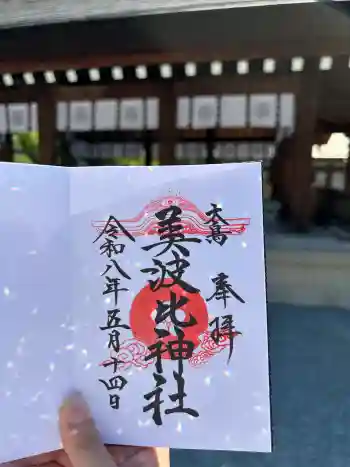 大鳥
奉拝
美波比神社
令和八年五月十四日